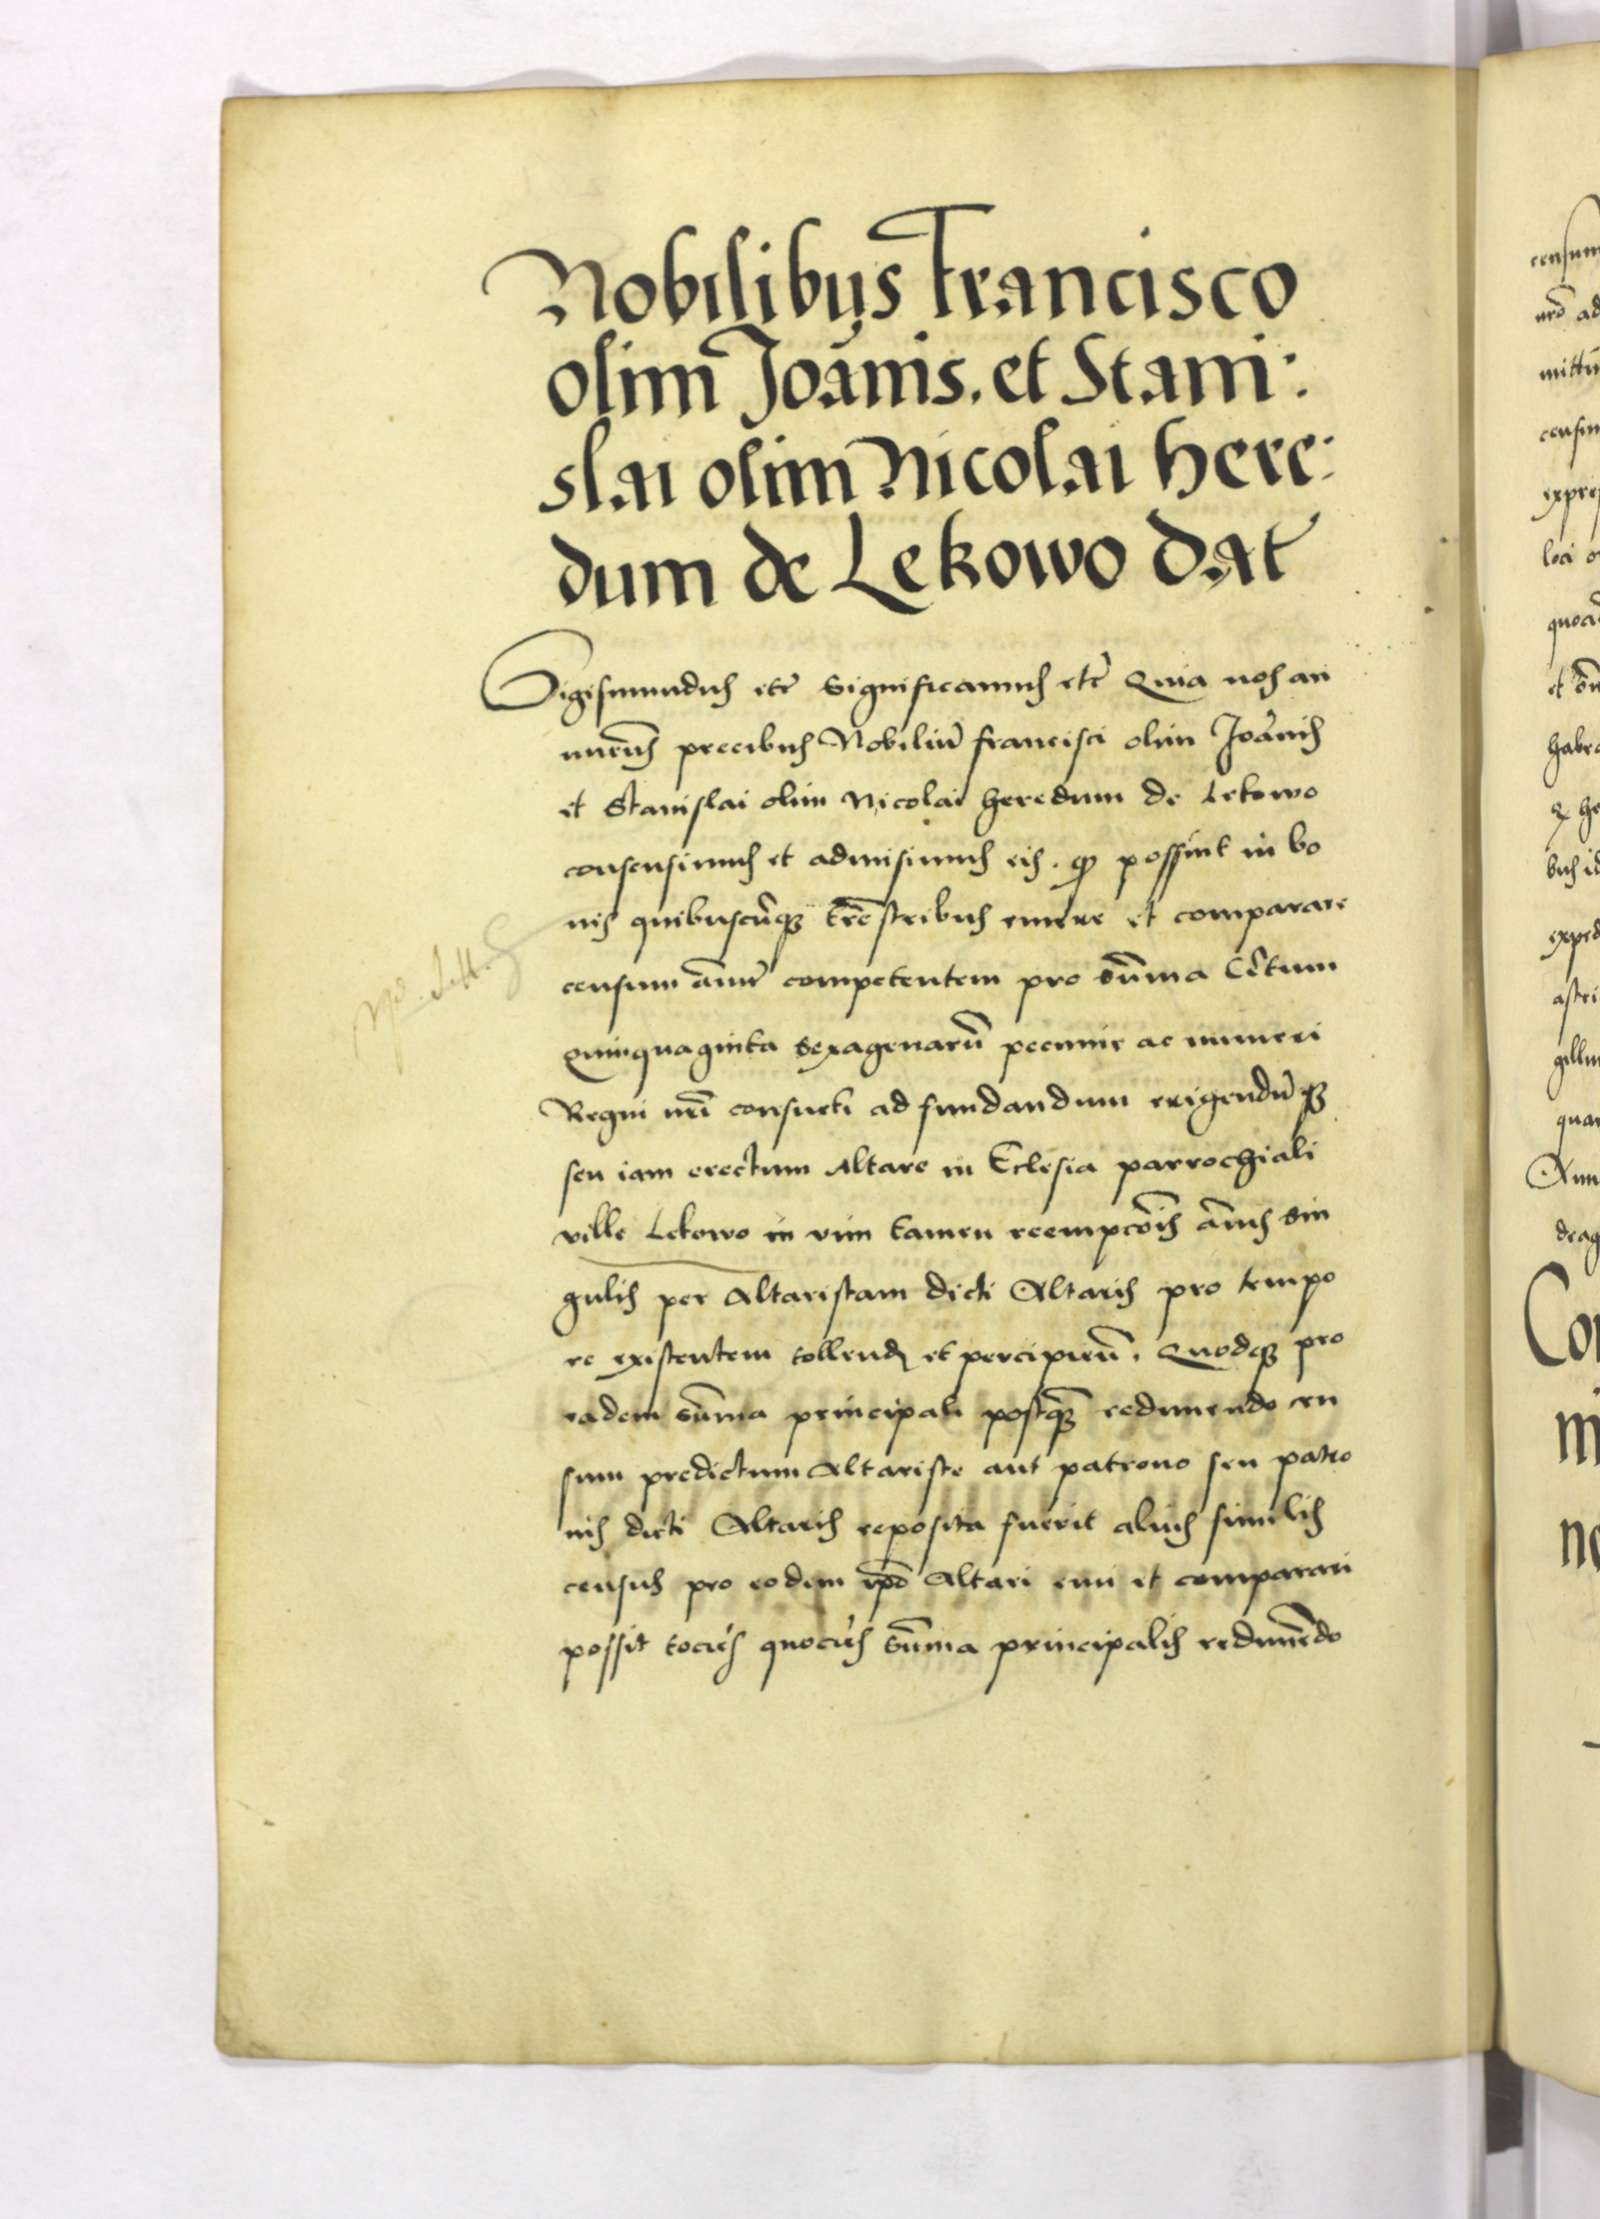 Nobilibus Francisco
olim Joānis. et Stani:
slai olim Nicolai here:
dum de Lekowo dat
Sigismundus etc̄ Significamus etc̄ Quia nos an
nuen̄s precibus Nobiliū francisci olim Joānis
et Stanislai olim Nicolai heredum de Lekowo
consensimus et admisimus eis. qꝫ possint in bo
nis quibuscūqꝫ trēstribus emere et comparare
censum ān̄m competentem pro sūma Cētum
Quinquaginta sexagenarū pecunie ac numeri
Regni nr̄i consueti ad fundandum erigendūqꝫ
seu iam erectum Altare in Eclesia parrochiali
ville Lekowo in vim tamen reempcōis ānis sin
gulis per Altaristam dicti Altaris pro tempo
re existentem tollend et percipieñ. Quodqꝫ pro
eadem sūma principali postqꝫ redimendo cen
sum predictum Altariste aut patrono seu patro
nis dicti Altaris reposita fuerit alius similis
census pro eodem ip̄o Altari emi et comparari
possit tocies quocies sūma principalis redimēdo